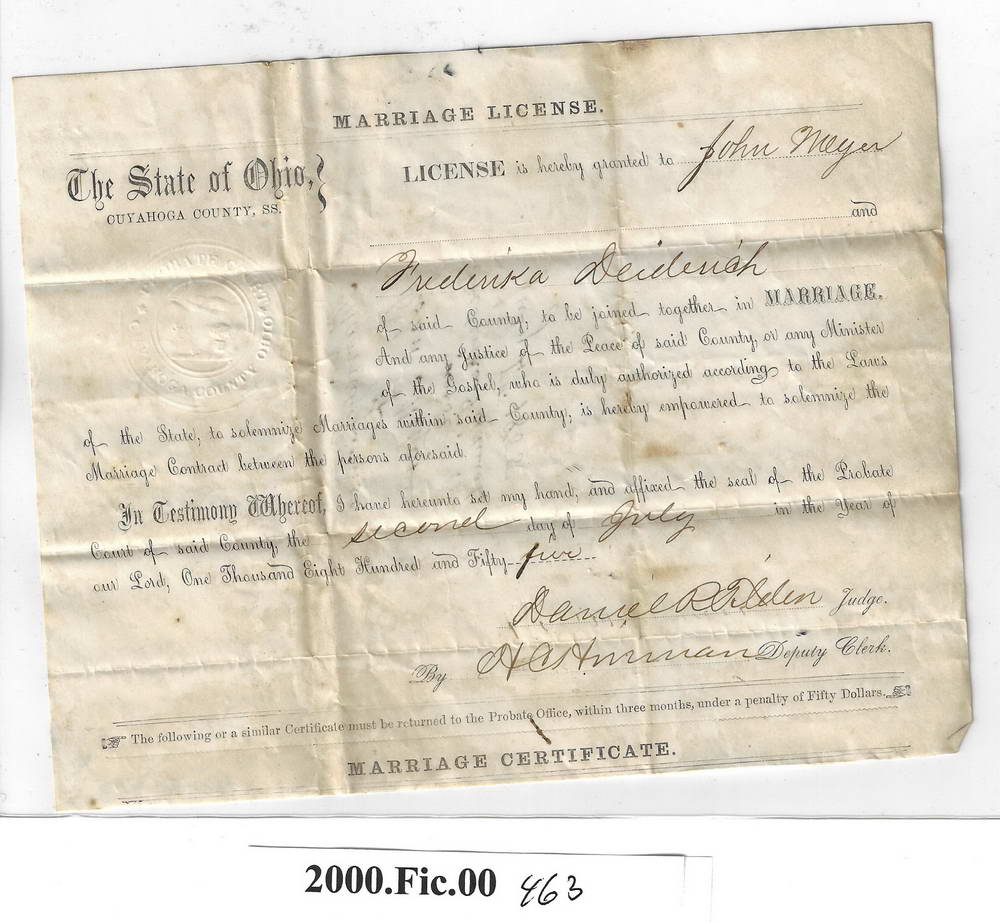 MARRIAGE LICENSE.
The State of Ohio,
CUYAHOGA COUNTY, SS.
LICENSE is hereby granted to John Meyer
and
Frederika Deiderich
of said County, to be joined together in MARRIAGE.
And any Justice of the Peace of said County, or any Minister
of the Gospel, who is duly authorized according to the Laws
of the State, to solemnize Marriages within said County, is hereby empowered to solemnize the
Marriage Contract between the persons aforesaid.
In Testimony Whereof, I have hereunto set my hand, and affixed the seal of the Probate
Court of said County, the second day of July in the Year of
our Lord, One Thousand Eight Hundred and Fifty-five
Daniel R Tilden Judge.
By Deputy Clerk.
The following or a similar Certificate must be returned to the Probate Office, within three months, under a penalty of Fifty Dollars.
MARRIAGE CERTIFICATE.
2000.Fic.00 463